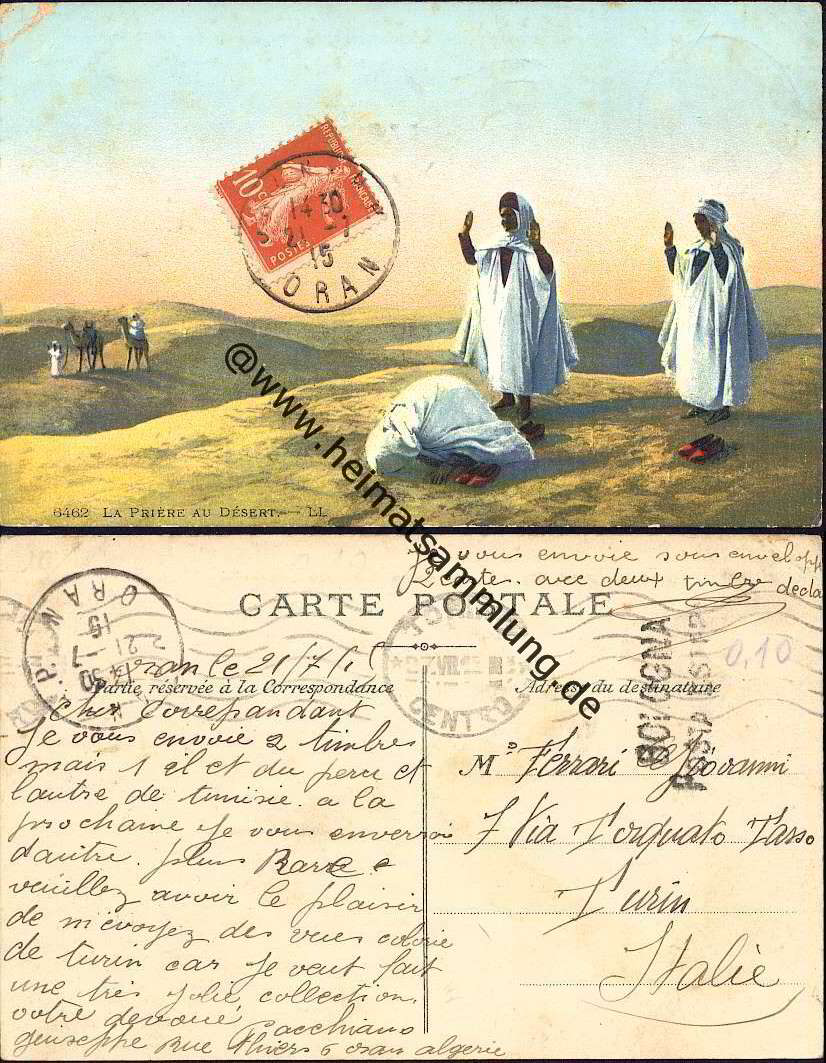 RÉPUBLIQUE FRANÇAISE
10C
POSTES
14 30
21 -7
15
ORAN
@www.heimatsammlung.de
6462 LA PRIÈRE AU DÉSERT. — LL
vous envoie sous envelopp
2 cartes. avec deux timbre decla
CARTE POSTALE
ORAN
15
21 -7
14 30
CENTRO
BOLOGNA
POSTA ESTERA
0,10
Oran le 21/7/15
Partie réservée à la Correspondance
Adresse du destinataire
Cher Correpandant
Je vous envoie 2 timbres
mais 1 il et du peru et
l'autre de tunisie. a la
prochaine je vous enverrai
d'autre. plus Rare e
veuillez avoir le plaisir
de m'évoyez des vues colorie
de turin car je veut fait
une très jolie collection.
votre devoué Cacchiano
geuiseppe Rue Thiers 6 oran algerie
M. Ferrari Giovanni
7 Via Torquato Tasso
Turin
Italie